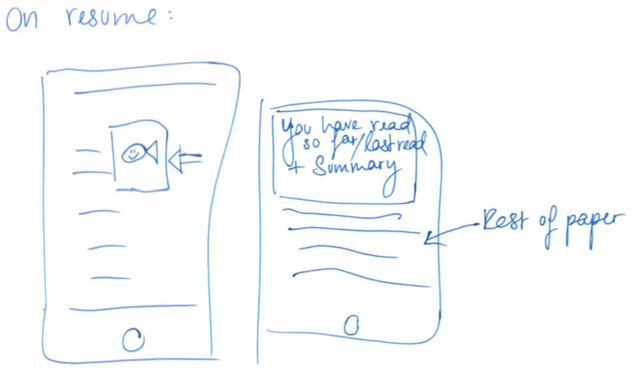 On resume:
You have read
so far/last read
+ Summary
Rest of paper